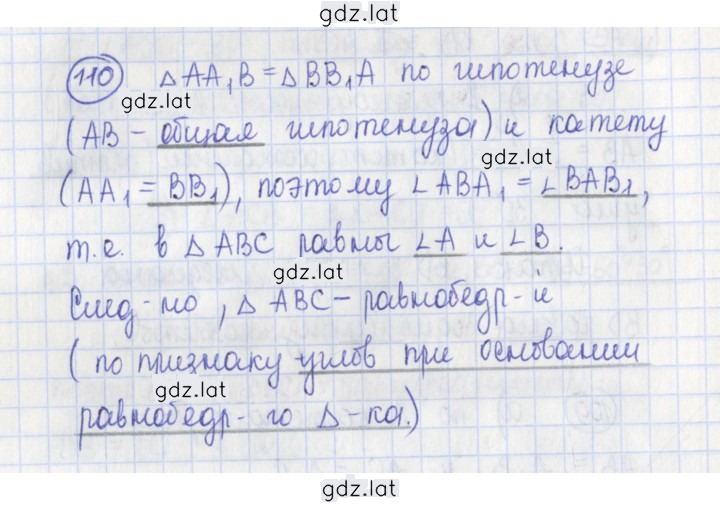 gdz.lat
110 ΔAA₁B = ΔBB₁A по гипотенузе
gdz.lat
(AB - общая гипотенуза) и катету
gdz.lat
(AA₁ = BB₁), поэтому ∠ABA₁ = ∠BAB₁,
т.е. в ΔABC равны ∠A и ∠B.
gdz.lat
След-но, ΔABC - равнобедр-й
(по признаку углов при основании
gdz.lat
равнобедр-го Δ-ка.)
gdz.lat